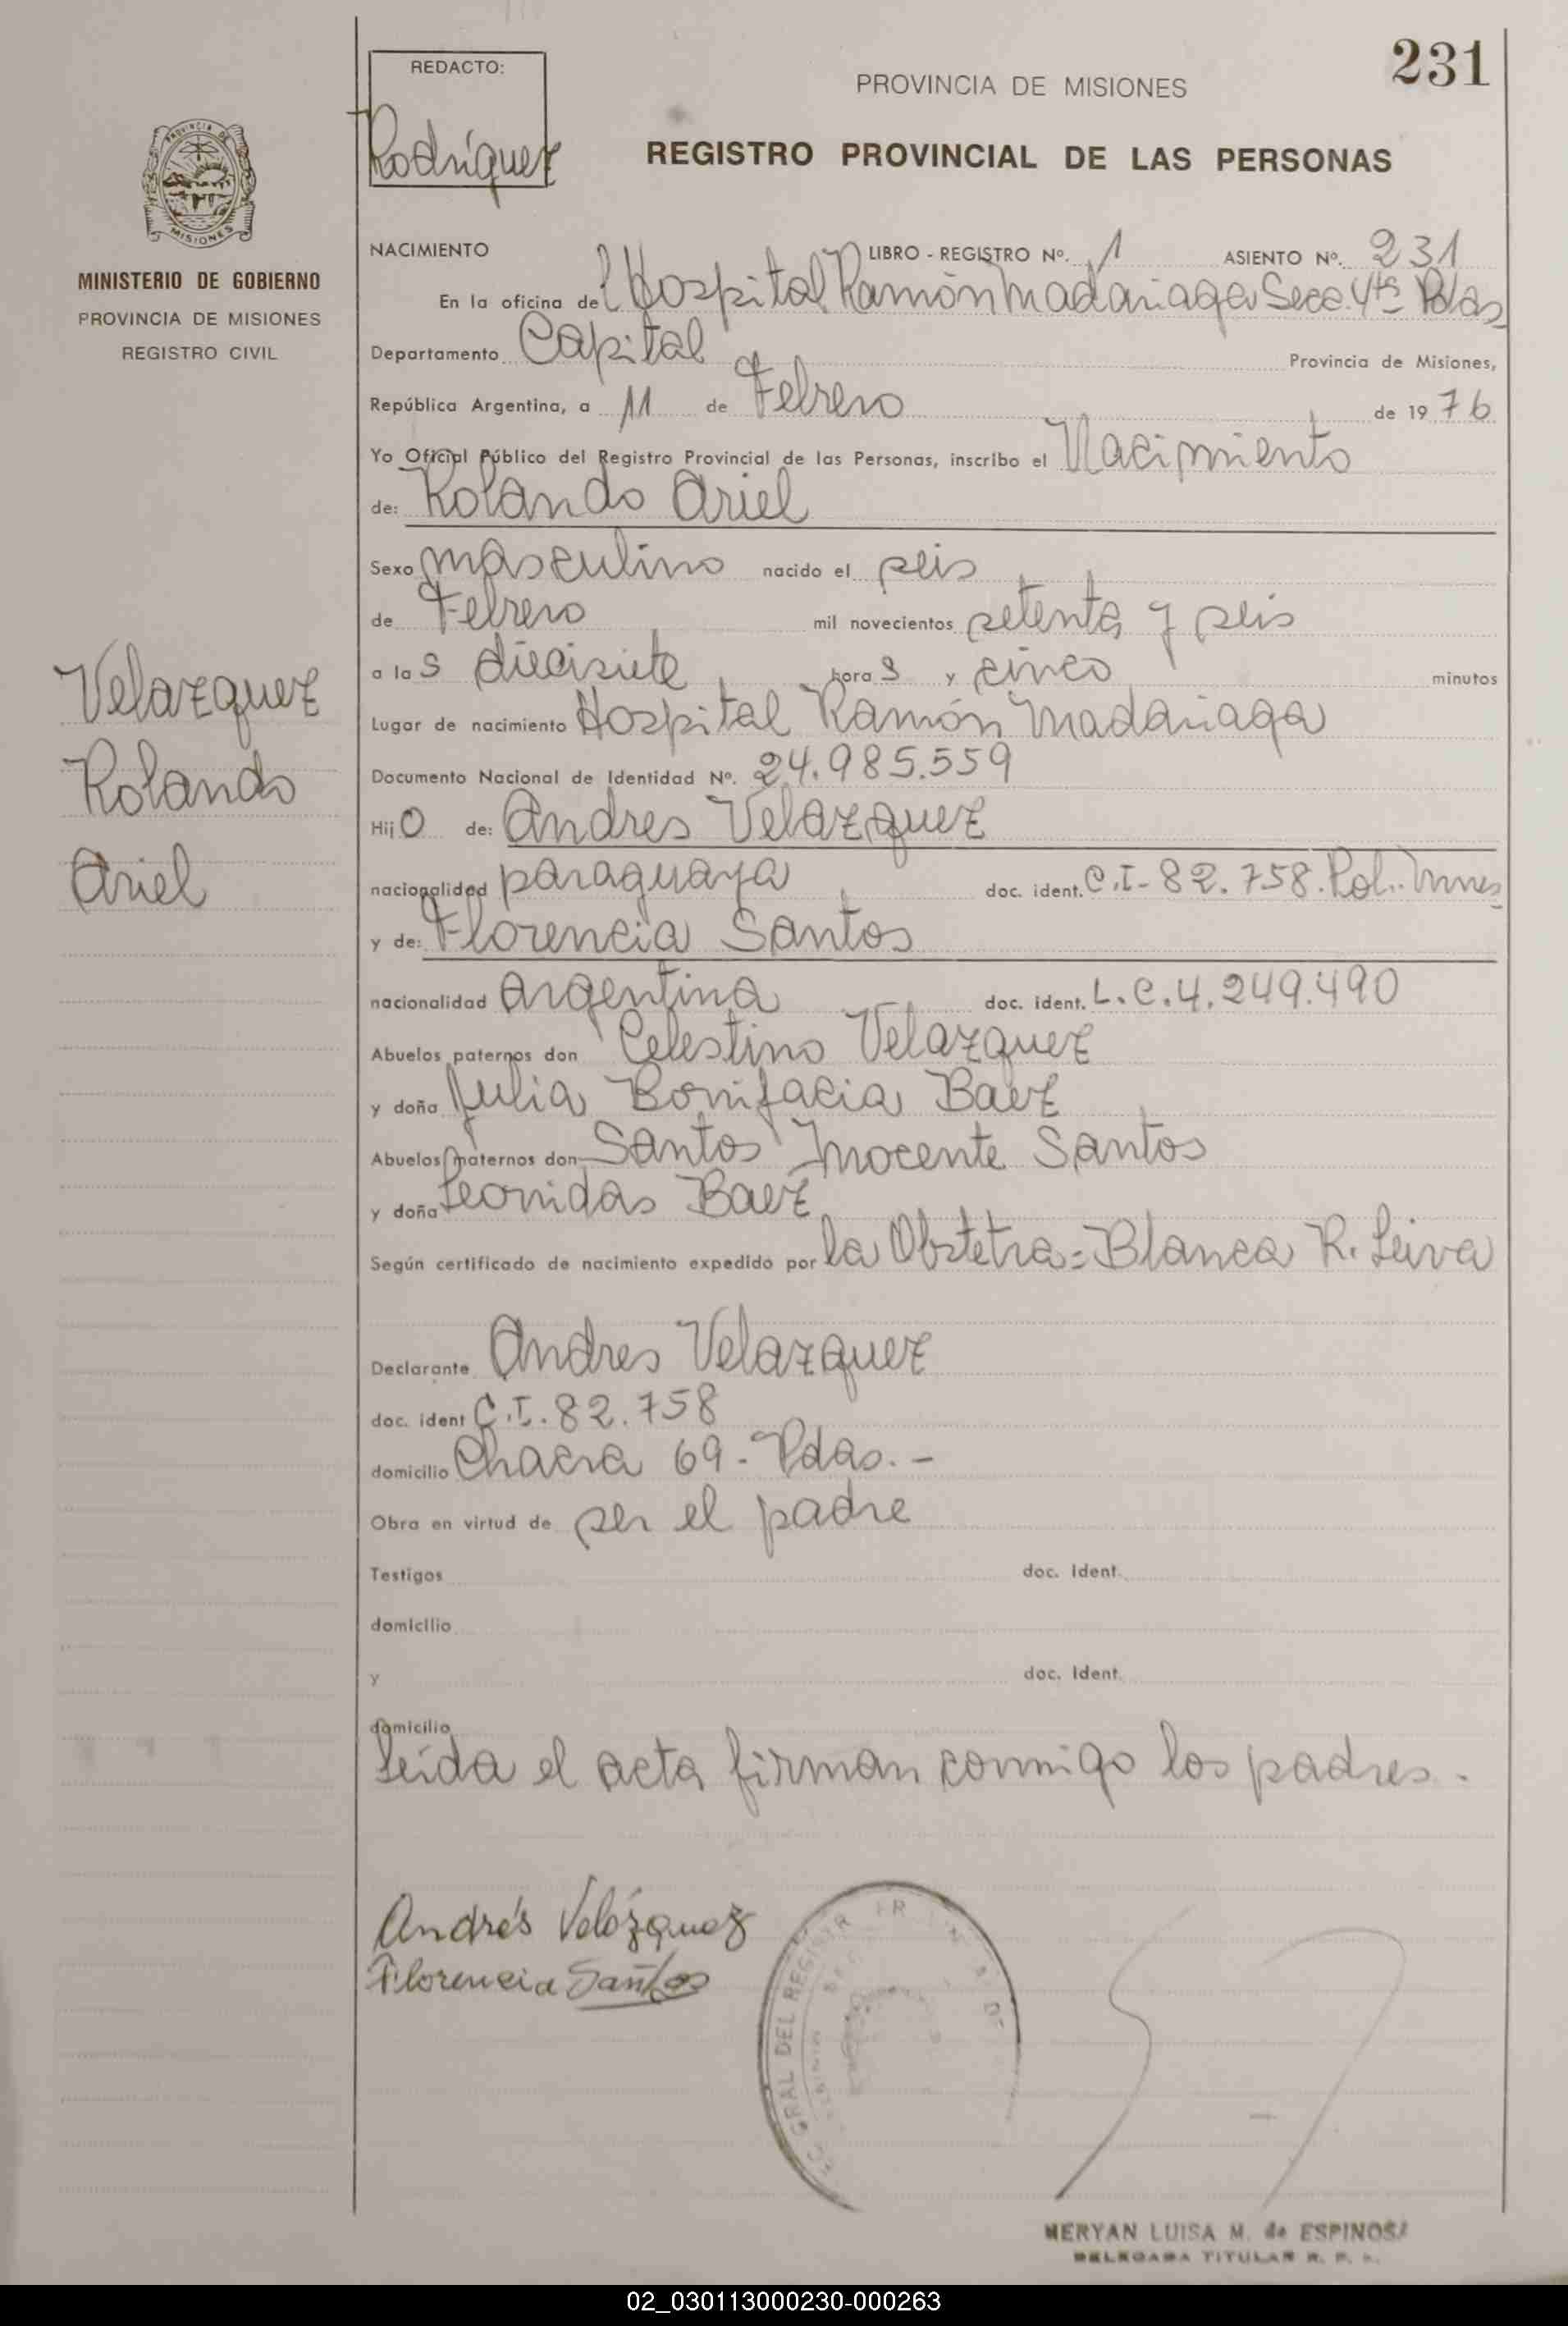 231
REDACTO:
Rodríguez
PROVINCIA DE MISIONES
REGISTRO PROVINCIAL DE LAS PERSONAS
PROVINCIA DE
MISIONES
MINISTERIO DE GOBIERNO
PROVINCIA DE MISIONES
REGISTRO CIVIL
NACIMIENTO LIBRO - REGISTRO Nº. 1 ASIENTO Nº. 231
En la oficina del Hospital Ramón Madariaga Secc. 4ta Pdas
Departamento Capital Provincia de Misiones,
República Argentina, a 11 de Febrero de 1976
Yo Oficial Público del Registro Provincial de las Personas, inscribo el Nacimiento
de: Rolando Ariel
Sexo masculino nacido el seis
de Febrero mil novecientos setenta y seis
a las diecisiete horas y cinco minutos
Velazquez
Rolando
Ariel
Lugar de nacimiento Hospital Ramón Madariaga
Documento Nacional de Identidad Nº. 24.985.559
Hijo de: Andres Velazquez
nacionalidad paraguaya doc. ident. C.I- 82.758. Pol. Mnes
y de: Florencia Santos
nacionalidad Argentina doc. ident. L.C. 4.249.490
Abuelos paternos don Celestino Velazquez
y doña Julia Bonifacia Baez
Abuelos maternos don Santos Inocente Santos
y doña Leonidas Baez
Según certificado de nacimiento expedido por la Obstetra = Blanca R. Leiva
Declarante Andres Velazquez
doc. ident C.I. 82.758
domicilio Chacra 69 - Pdas. -
Obra en virtud de ser el padre
Testigos doc. Ident.
domicilio
y doc. Ident.
domicilio
Leída el acta firman conmigo los padres.
Andrés Velázquez
Florencia Santos
GRAL DEL REGISTR
MERYAN LUISA M. de ESPINOSA
DELEGADA TITULAR R. P.
02_030113000230-000263